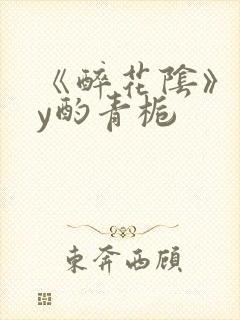 《醉花陰》
y酌青梔
東奔西顧